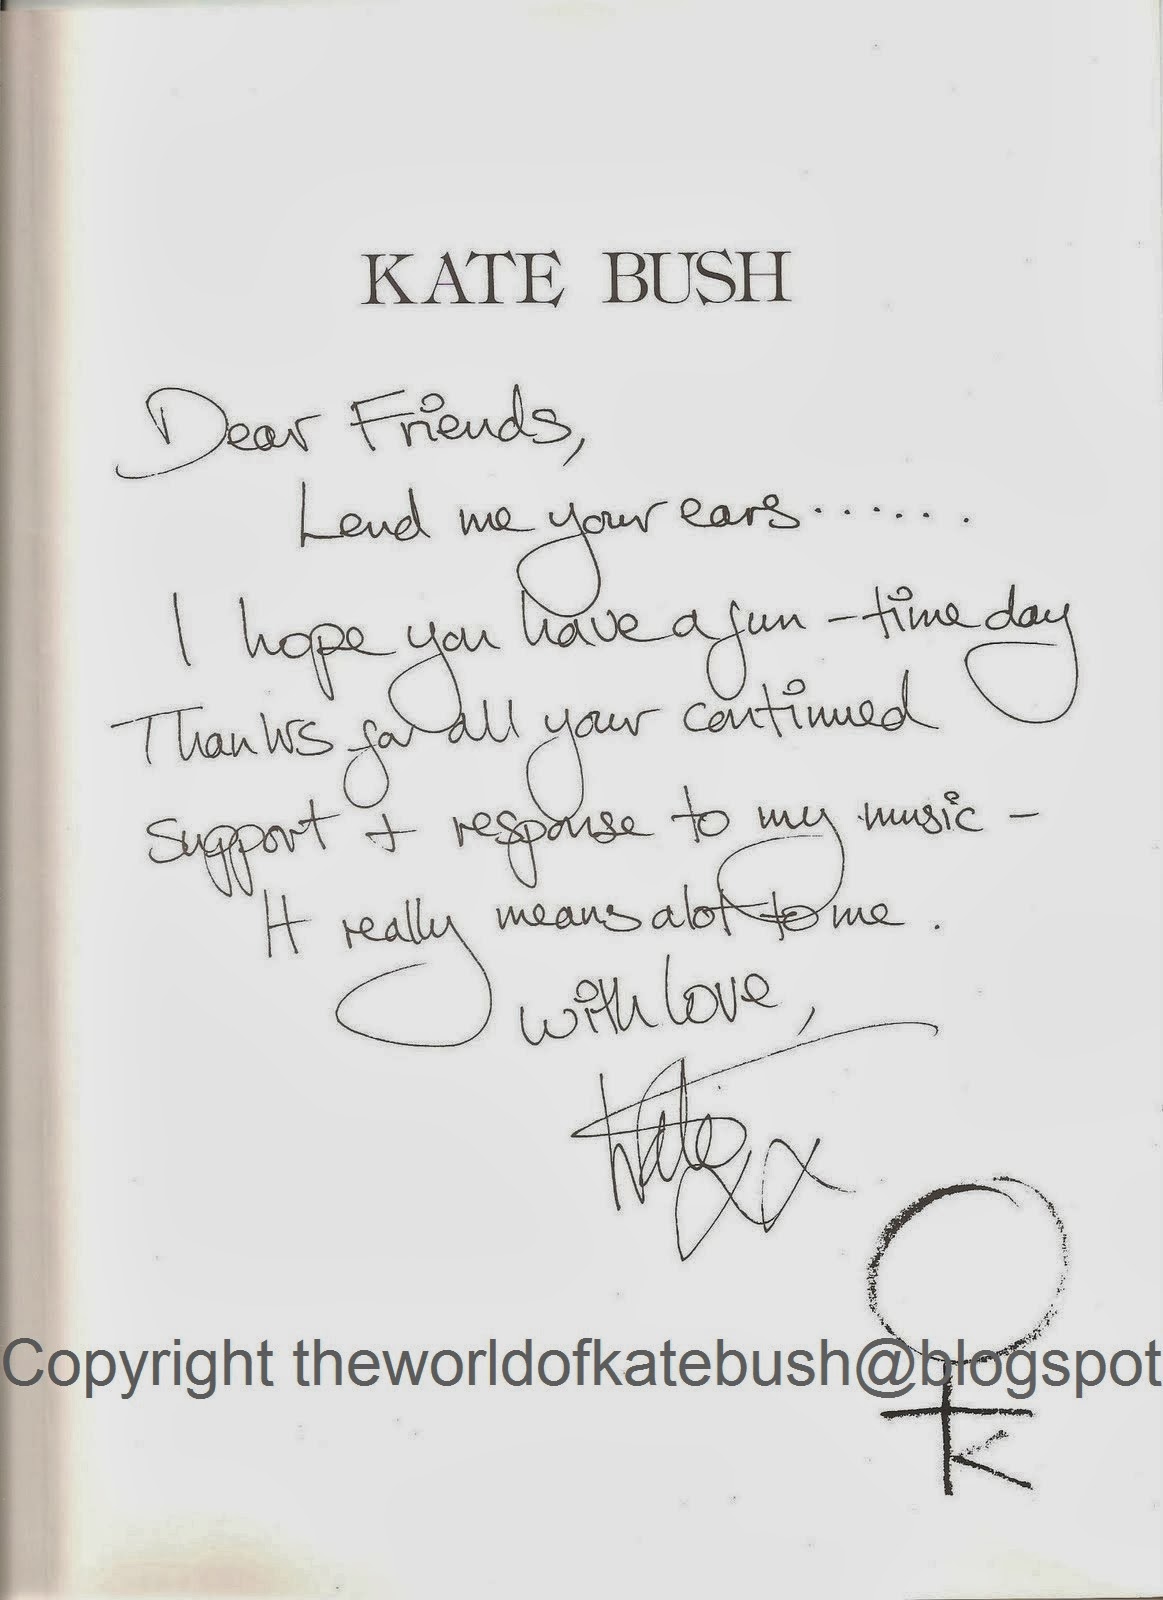 KATE BUSH
Dear Friends,
Lend me your ears......
I hope you have a fun-time day
Thanks for all your continued
support + response to my music -
It really means alot to me.
with love,
Kate xx
Copyright theworldofkatebush@blogspot
K